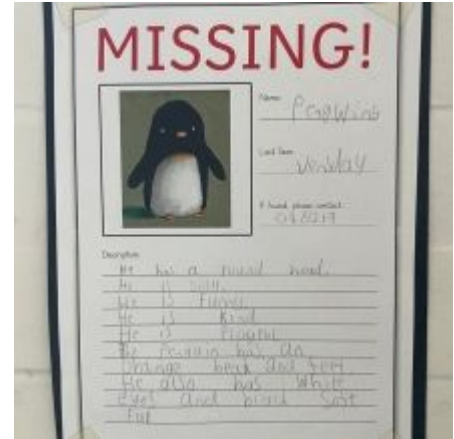 MISSING!
Name:
Pengwing
Last Seen:
If found, please contact:
Description:
He has a round head.
He is silly.
He is funny.
He is Kind
He is Playful
The Penguin has an
Orange beak and feet.
He also has White
eyes and black Soft
fur